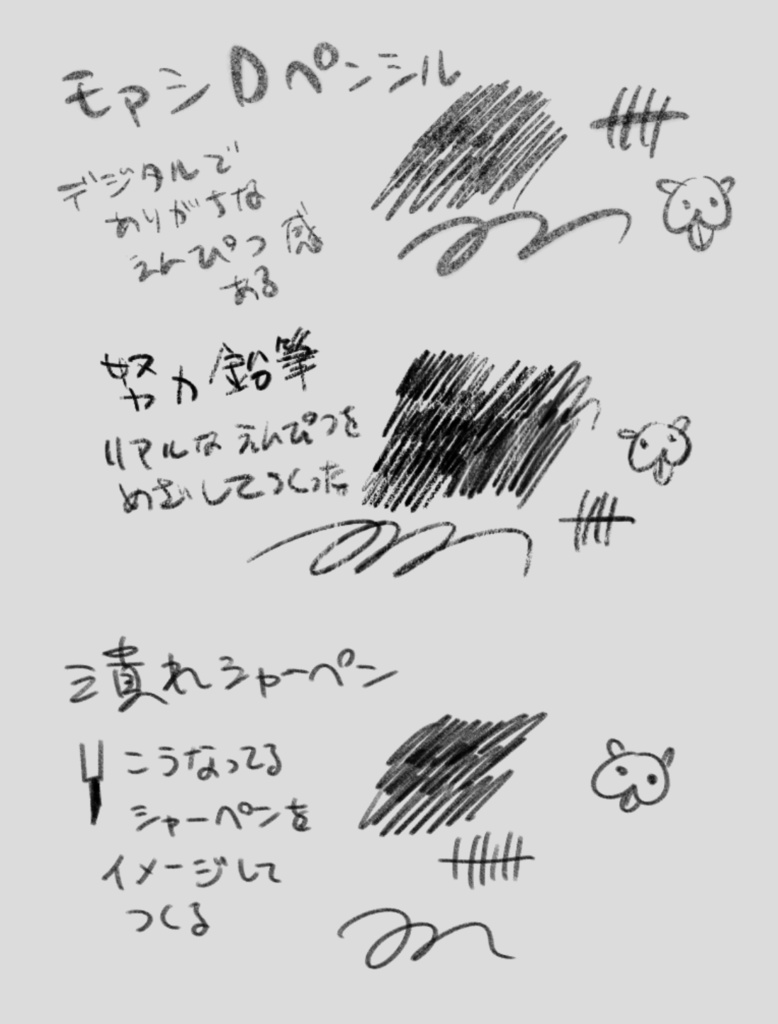 モアシDペンシル
デジタルで
ありがちな
えんぴつ感
ある
努力鉛筆
リアルなえんぴつを
めざしてつくった
潰れシャーペン
こうなってる
シャーペンを
イメージして
つくる